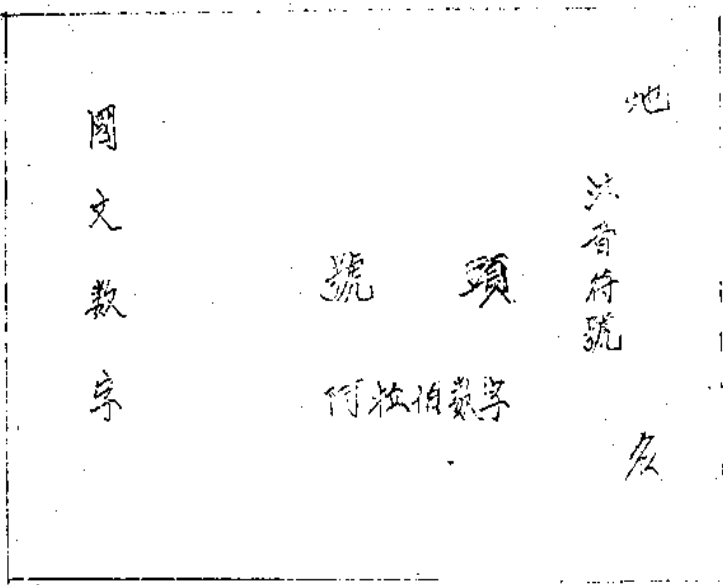 地名
注音符號
號頭
阿拉伯數字
國文数字